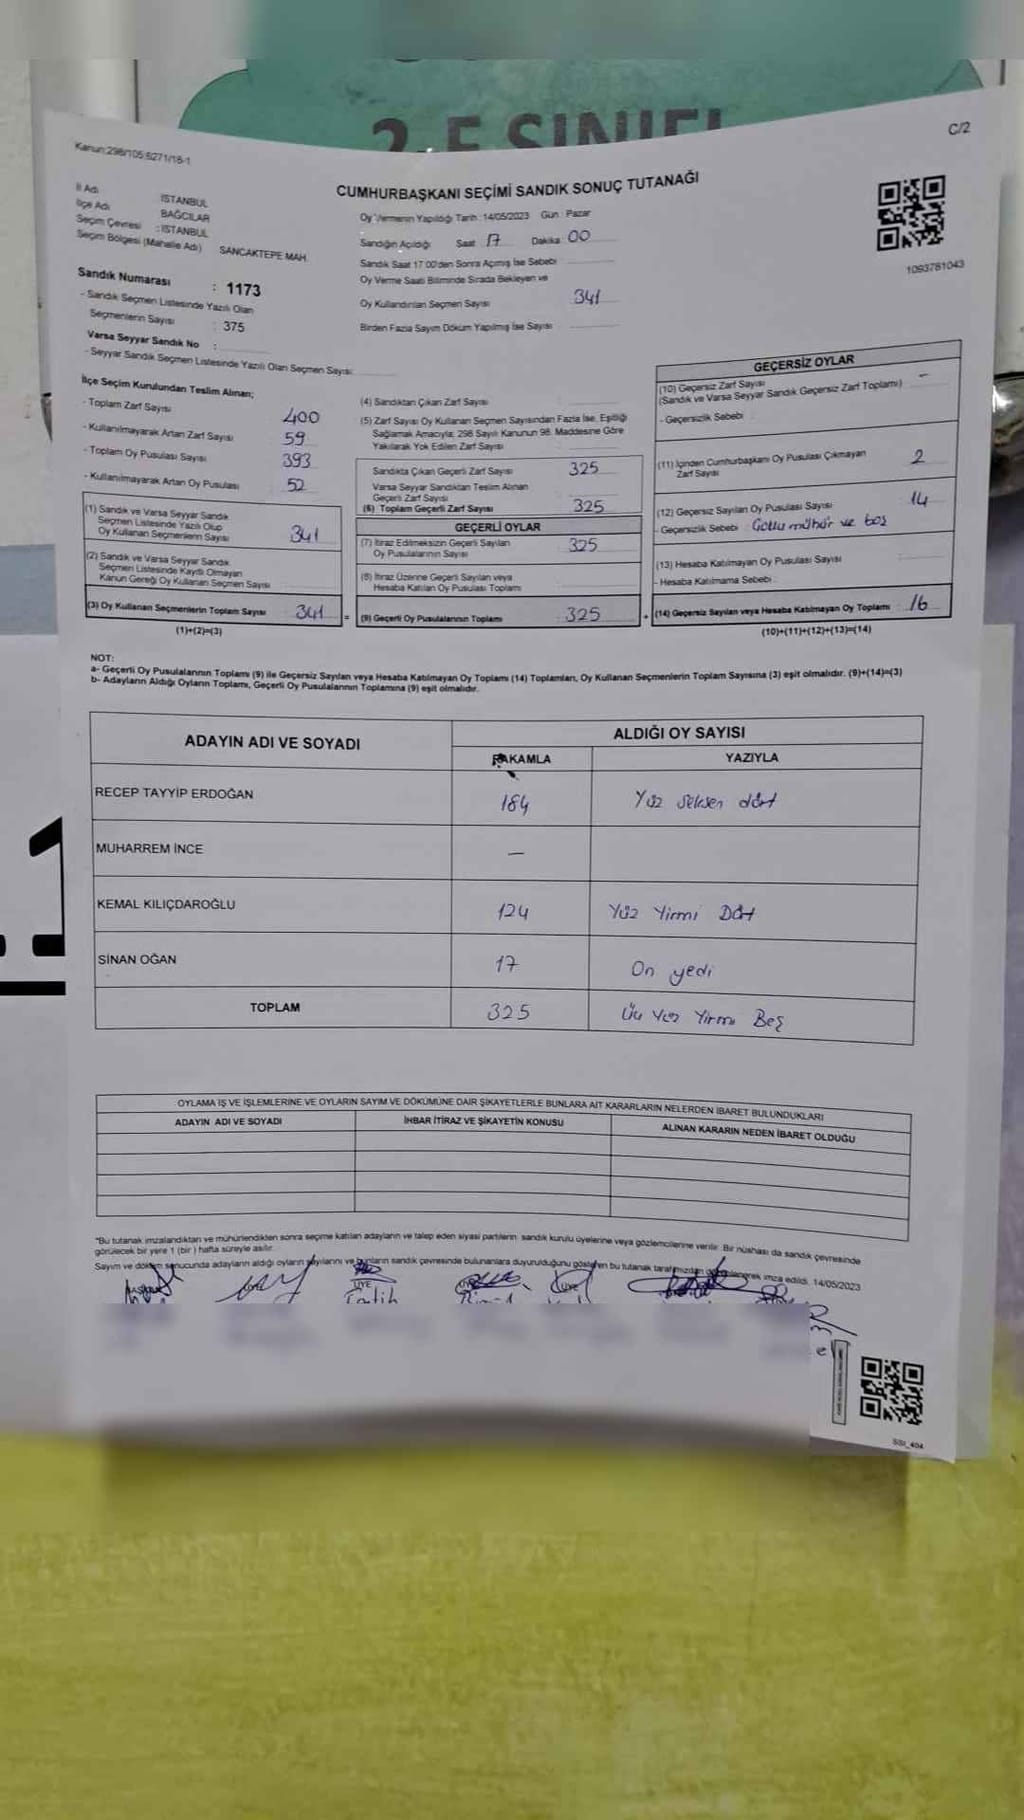 2-E SINIFI
C/2
Kanun:298/105;6271/18-1
CUMHURBAŞKANI SEÇİMİ SANDIK SONUÇ TUTANAĞI
İl Adı : İSTANBUL
İlçe Adı : BAĞCILAR
Seçim Çevresi : İSTANBUL
Seçim Bölgesi (Mahalle Adı) SANCAKTEPE MAH.
Sandık Numarası : 1173
- Sandık Seçmen Listesinde Yazılı Olan
Seçmenlerin Sayısı : 375
Varsa Seyyar Sandık No :
- Seyyar Sandık Seçmen Listesinde Yazılı Olan Seçmen Sayısı:
Oy Vermenin Yapıldığı Tarih: 14/05/2023 Gün: Pazar
Sandığın Açıldığı Saat 17 Dakika 00
Sandık Saat 17:00'den Sonra Açılmış İse Sebebi
Oy Verme Saati Bitiminde Sırada Bekleyen ve
Oy Kullandırılan Seçmen Sayısı 341
Birden Fazla Sayım Döküm Yapılmış İse Sayısı
1093781043
İlçe Seçim Kurulundan Teslim Alınan;
- Toplam Zarf Sayısı 400
- Kullanılmayarak Artan Zarf Sayısı 59
- Toplam Oy Pusulası Sayısı 393
- Kullanılmayarak Artan Oy Pusulası 52
(1) Sandık ve Varsa Seyyar Sandık
Seçmen Listesinde Yazılı Olup
Oy Kullanan Seçmenlerin Sayısı 341
(2) Sandık ve Varsa Seyyar Sandık
Seçmen Listesinde Kayıtlı Olmayan
Kanun Gereği Oy Kullanan Seçmen Sayısı
(3) Oy Kullanan Seçmenlerin Toplam Sayısı 341 =
(1)+(2)=(3)
(4) Sandıktan Çıkan Zarf Sayısı
(5) Zarf Sayısı Oy Kullanan Seçmen Sayısından Fazla İse, Eşitliği
Sağlamak Amacıyla; 298 Sayılı Kanunun 98. Maddesine Göre
Yakılarak Yok Edilen Zarf Sayısı
Sandıkta Çıkan Geçerli Zarf Sayısı 325
Varsa Seyyar Sandıktan Teslim Alınan
Geçerli Zarf Sayısı
(6) Toplam Geçerli Zarf Sayısı 325
GEÇERLİ OYLAR
(7) İtiraz Edilmeksizin Geçerli Sayılan
Oy Pusulalarının Sayısı 325
(8) İtiraz Üzerine Geçerli Sayılan veya
Hesaba Katılan Oy Pusulası Toplamı
(9) Geçerli Oy Pusulalarının Toplamı 325 +
GEÇERSİZ OYLAR
(10) Geçersiz Zarf Sayısı –
(Sandık ve Varsa Seyyar Sandık Geçersiz Zarf Toplamı)
- Geçersizlik Sebebi :
(11) İçinden Cumhurbaşkanı Oy Pusulası Çıkmayan
Zarf Sayısı 2
(12) Geçersiz Sayılan Oy Pusulası Sayısı 14
- Geçersizlik Sebebi : Çoklu mühür ve boş
(13) Hesaba Katılmayan Oy Pusulası Sayısı
- Hesaba Katılmama Sebebi :
(14) Geçersiz Sayılan veya Hesaba Katılmayan Oy Toplamı : 16
(10)+(11)+(12)+(13)=(14)
NOT:
a- Geçerli Oy Pusulalarının Toplamı (9) ile Geçersiz Sayılan veya Hesaba Katılmayan Oy Toplamı (14) Toplamları, Oy Kullanan Seçmenlerin Toplam Sayısına (3) eşit olmalıdır. (9)+(14)=(3)
b- Adayların Aldığı Oyların Toplamı, Geçerli Oy Pusulalarının Toplamına (9) eşit olmalıdır.
ADAYIN ADI VE SOYADI
ALDIĞI OY SAYISI
RAKAMLA YAZIYLA
RECEP TAYYİP ERDOĞAN 184 Yüz seksen dört
MUHARREM İNCE –
KEMAL KILIÇDAROĞLU 124 Yüz Yirmi Dört
SİNAN OĞAN 17 On yedi
TOPLAM 325 Üç Yüz Yirmi Beş
OYLAMA İŞ VE İŞLEMLERİNE VE OYLARIN SAYIM VE DÖKÜMÜNE DAİR ŞİKAYETLERLE BUNLARA AİT KARARLARIN NELERDEN İBARET BULUNDUKLARI
ADAYIN ADI VE SOYADI İHBAR İTİRAZ VE ŞİKAYETİN KONUSU ALINAN KARARIN NEDEN İBARET OLDUĞU
"Bu tutanak imzalandıktan ve mühürlendikten sonra seçime katılan adayların ve talep eden siyasi partilerin sandık kurulu üyelerine veya gözlemcilerine verilir. Bir nüshası da sandık çevresinde
görülecek bir yere 1 (bir) hafta süreyle asılır.
Sayım ve döküm sonucunda adayların aldığı oyların sayılarını ve bunların sandık çevresinde bulunanlara duyurulduğunu gösteren bu tutanak tarafımızdan düzenlenerek imza edildi. 14/05/2023
BAŞKAN ÜYE
Fatih
SSI_404